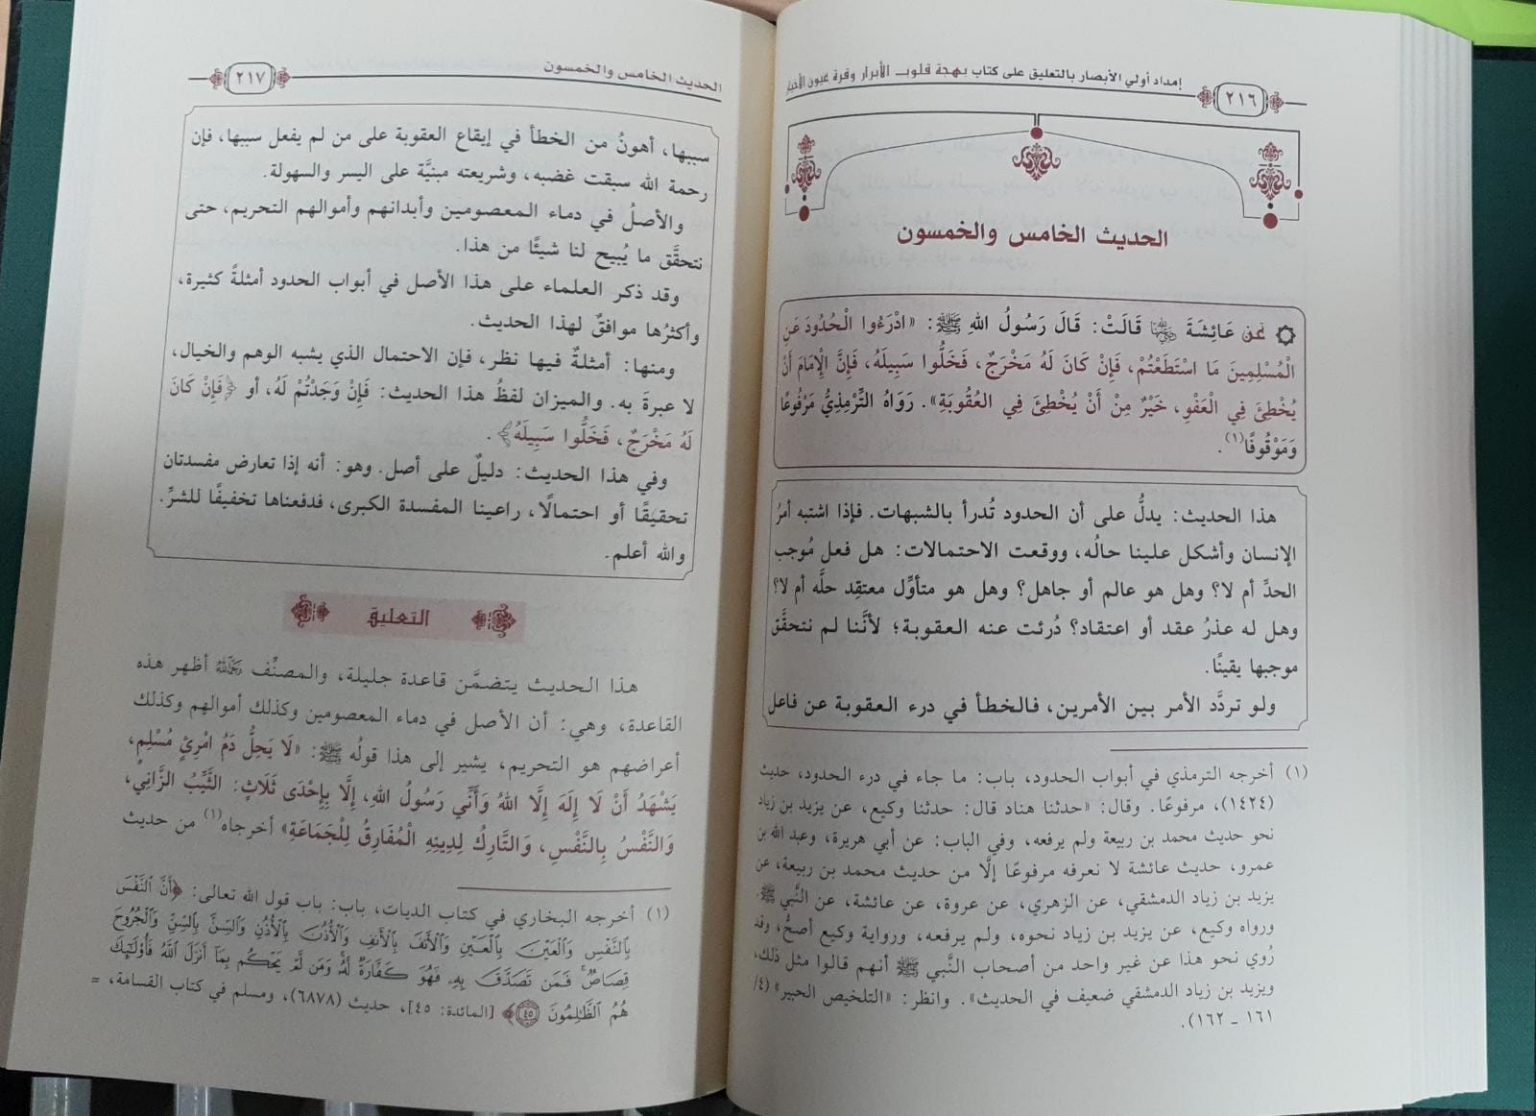 إمداد أولي الأبصار بالتعليق على كتاب بهجة قلوب الأبرار وقرة عيون الأخيار
٢١٦
الحديث الخامس والخمسون
عَنْ عَائِشَةَ رضي الله عنها قَالَتْ: قَالَ رَسُولُ اللهِ ﷺ: «ادْرَءُوا الْحُدُودَ عَنِ
الْمُسْلِمِينَ مَا اسْتَطَعْتُمْ، فَإِنْ كَانَ لَهُ مَخْرَجٌ، فَخَلُّوا سَبِيلَهُ، فَإِنَّ الإِمَامَ أَنْ
يُخْطِئَ فِي الْعَفْوِ، خَيْرٌ مِنْ أَنْ يُخْطِئَ فِي العُقُوبَةِ». رَوَاهُ التِّرْمِذِيُّ مَرْفُوعًا
وَمَوْقُوفًا(١).
هذا الحديث: يدلُّ على أن الحدود تُدرأ بالشبهات. فإذا اشتبه أمرُ
الإنسان وأشكل علينا حالُه، ووقعت الاحتمالات: هل فعل مُوجب
الحدِّ أم لا؟ وهل هو عالم أو جاهل؟ وهل هو متأوِّل معتقِد حلَّه أم لا؟
وهل له عذرُ عقد أو اعتقاد؟ دُرئت عنه العقوبة؛ لأنَّنا لم نتحقَّق
موجبها يقينًا.
ولو تردَّد الأمر بين الأمرين، فالخطأ في درء العقوبة عن فاعل
(١) أخرجه الترمذي في أبواب الحدود، باب: ما جاء في درء الحدود، حديث
(١٤٢٤)، مرفوعًا. وقال: «حدثنا هناد قال: حدثنا وكيع، عن يزيد بن زياد
نحو حديث محمد بن ربيعة ولم يرفعه، وفي الباب: عن أبي هريرة، وعبد الله بن
عمرو، حديث عائشة لا نعرفه مرفوعًا إلَّا من حديث محمد بن ربيعة، عن
يزيد بن زياد الدمشقي، عن الزهري، عن عروة، عن عائشة، عن النَّبي ﷺ،
ورواه وكيع، عن يزيد بن زياد نحوه، ولم يرفعه، ورواية وكيع أصحُّ، وقد
رُوي نحو هذا عن غير واحد من أصحاب النَّبي ﷺ أنهم قالوا مثل ذلك،
ويزيد بن زياد الدمشقي ضعيف في الحديث». وانظر: «التلخيص الحبير» (٤/
١٦١ ـ ١٦٢).
الحديث الخامس والخمسون
٢١٧
سببها، أهونُ من الخطأ في إيقاع العقوبة على من لم يفعل سببها، فإن
رحمة الله سبقت غضبه، وشريعته مبنيَّة على اليسر والسهولة.
والأصلُ في دماء المعصومين وأبدانهم وأموالهم التحريم، حتى
نتحقَّق ما يُبيح لنا شيئًا من هذا.
وقد ذكر العلماء على هذا الأصل في أبواب الحدود أمثلةً كثيرة،
وأكثرُها موافقٌ لهذا الحديث.
ومنها: أمثلةٌ فيها نظر، فإن الاحتمال الذي يشبه الوهم والخيال،
لا عبرةَ به. والميزان لفظُ هذا الحديث: فَإِنْ وَجَدْتُمْ لَهُ، أو ﴿فَإِنْ كَانَ
لَهُ مَخْرَجٌ، فَخَلُّوا سَبِيلَهُ﴾.
وفي هذا الحديث: دليلٌ على أصل. وهو: أنه إذا تعارض مفسدتان
تحقيقًا أو احتمالًا، راعينا المفسدة الكبرى، فدفعناها تخفيفًا للشرِّ.
والله أعلم.
التعليق
هذا الحديث يتضمَّن قاعدة جليلة، والمصنِّف رحمه الله أظهر هذه
القاعدة، وهي: أن الأصل في دماء المعصومين وكذلك أموالهم وكذلك
أعراضهم هو التحريم، يشير إلى هذا قولُه ﷺ: «لَا يَحِلُّ دَمُ امْرِئٍ مُسْلِمٍ،
يَشْهَدُ أَنْ لَا إِلَهَ إِلَّا اللهُ وَأَنِّي رَسُولُ اللهِ، إِلَّا بِإِحْدَى ثَلَاثٍ: الثَّيِّبُ الزَّانِي،
وَالنَّفْسُ بِالنَّفْسِ، وَالتَّارِكُ لِدِينِهِ الْمُفَارِقُ لِلْجَمَاعَةِ» أخرجاه(١) من حديث
(١) أخرجه البخاري في كتاب الديات، باب: باب قول الله تعالى: ﴿أَنَّ ٱلنَّفْسَ
بِٱلنَّفْسِ وَٱلْعَيْنَ بِٱلْعَيْنِ وَٱلْأَنفَ بِٱلْأَنفِ وَٱلْأُذُنَ بِٱلْأُذُنِ وَٱلسِّنَّ بِٱلسِّنِّ وَٱلْجُرُوحَ
قِصَاصٌ ۚ فَمَن تَصَدَّقَ بِهِۦ فَهُوَ كَفَّارَةٌ لَّهُۥ ۚ وَمَن لَّمْ يَحْكُم بِمَآ أَنزَلَ ٱللَّهُ فَأُو۟لَـٰٓئِكَ
هُمُ ٱلظَّـٰلِمُونَ ٤٥﴾ [المائدة: ٤٥]، حديث (٦٨٧٨)، ومسلم في كتاب القسامة، =